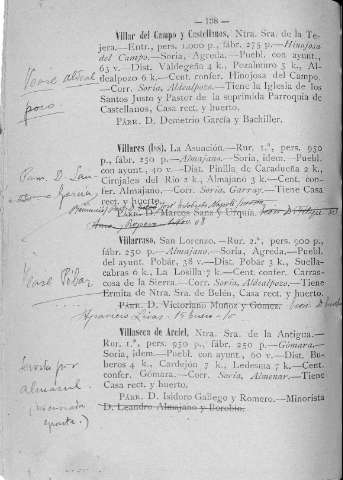 — 138 —
Villar del Campo y Castellanos, Ntra. Sra. de la Te-
jera.—Entr., pers. 1.000 p., fábr. 275 p.—Hinojosa
del Campo.—Soria, Agreda.—Puebl. con ayunt.,
63 v.—Dist. Valdegeña 4 k., Pozalmuro 3 k., Al-
dealpozo 6 k.—Cent. confer. Hinojosa del Campo.
—Corr. Soria, Aldealpozo.—Tiene la Iglesia de los
Santos Justo y Pastor de la suprimida Parroquia de
Castellanos, Casa rect. y huerto.
PÁRR. D. Demetrio García y Bachiller.
Villares (los), La Asunción.—Rur. 1.ª, pers. 950
p., fábr. 250 p.—Almajano.—Soria, idem.—Puebl.
con ayunt., 40 v.—Dist. Pinilla de Caradueña 2 k.,
Cirujales del Rio 2 k., Almajano 3 k.—Cent. con-
fer. Almajano.—Corr. Soria, Garray.—Tiene Casa
rect. y huerto.
PÁRR. D. Marcos Sanz y Urquía.
Villarraso, San Lorenzo.—Rur. 2.ª, pers. 900 p.,
fábr. 250 p.—Almajano.—Soria, Agreda.—Puebl.
del ayunt. Pobár, 38 v.—Dist. Pobár 3 k., Suella-
cabras 6 k., La Losilla 7 k.—Cent. confer. Carras-
cosa de la Sierra.—Corr. Soria, Aldealpozo.—Tiene
Ermita de Ntra. Sra. de Belén, Casa rect. y huerto.
PÁRR. D. Victoriano Muñoz y Gómez.
Villaseca de Arciel, Ntra. Sra. de la Antigua.—
Rur. 1.ª, pers. 950 p., fábr. 250 p.—Gómara.—
Soria, idem.—Puebl. con ayunt., 60 v.—Dist. Bu-
beros 4 k., Cardejón 7 k., Ledesma 7 k.—Cent.
confer. Gómara.—Corr. Soria, Almenar.—Tiene
Casa rect. y huerto.
PÁRR. D. Isidoro Gallego y Romero.—Minorista
D. Leandro Almajano y Borobio.
Vease
pozo.
García
Vease Pobar
Servida por
almazul.